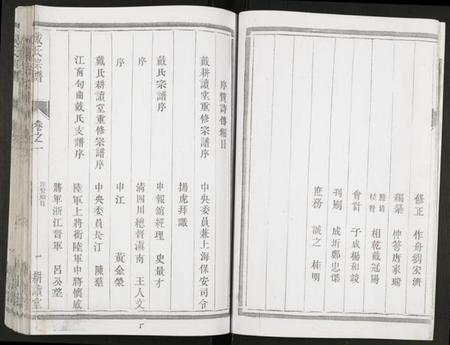 修正 作舟 劉宏濟
編纂 仲芳 唐家瑞
謄清 校對 相乾 戴冠陽
會計 子成 楊和譲
刊刷 成沂 鄭忠傑
庶務 誠之 楠明
序贊詩傳細目
戴耕讀堂重修宗譜序 中央委員兼上海保安司令
楊虎拜讖
戴氏宗譜序 申報館經理 史量才
序 清四川總督滇南 王人文
序 申江 黃金榮
戴氏耕讀堂重修宗譜序 中央委員長汀 陳羣
江甯句曲戴氏支譜序 陸軍上將銜陸軍中將懷威
將軍浙江督軍 呂公望
戴氏宗譜
卷之一
序贊細目
一 耕讀堂